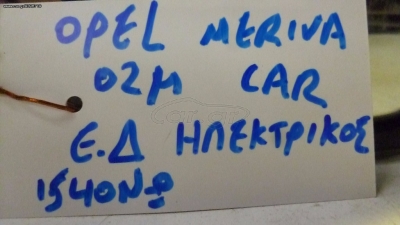 OPEL MERIVA
02M CAR
Ε.Δ ΗΛΕΚΤΡΙΚΟΣ